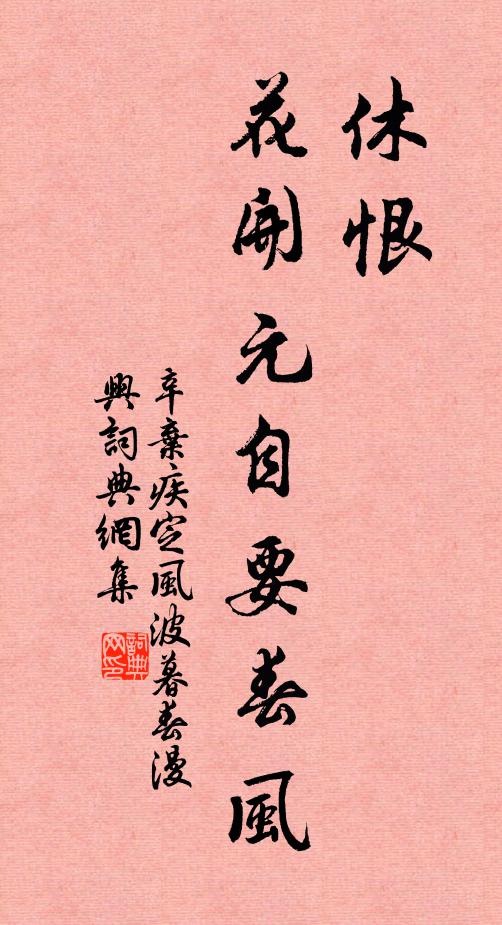 休恨
花開元自要春風
辛棄疾定風波暮春漫
興詞典網集
詞典
网印